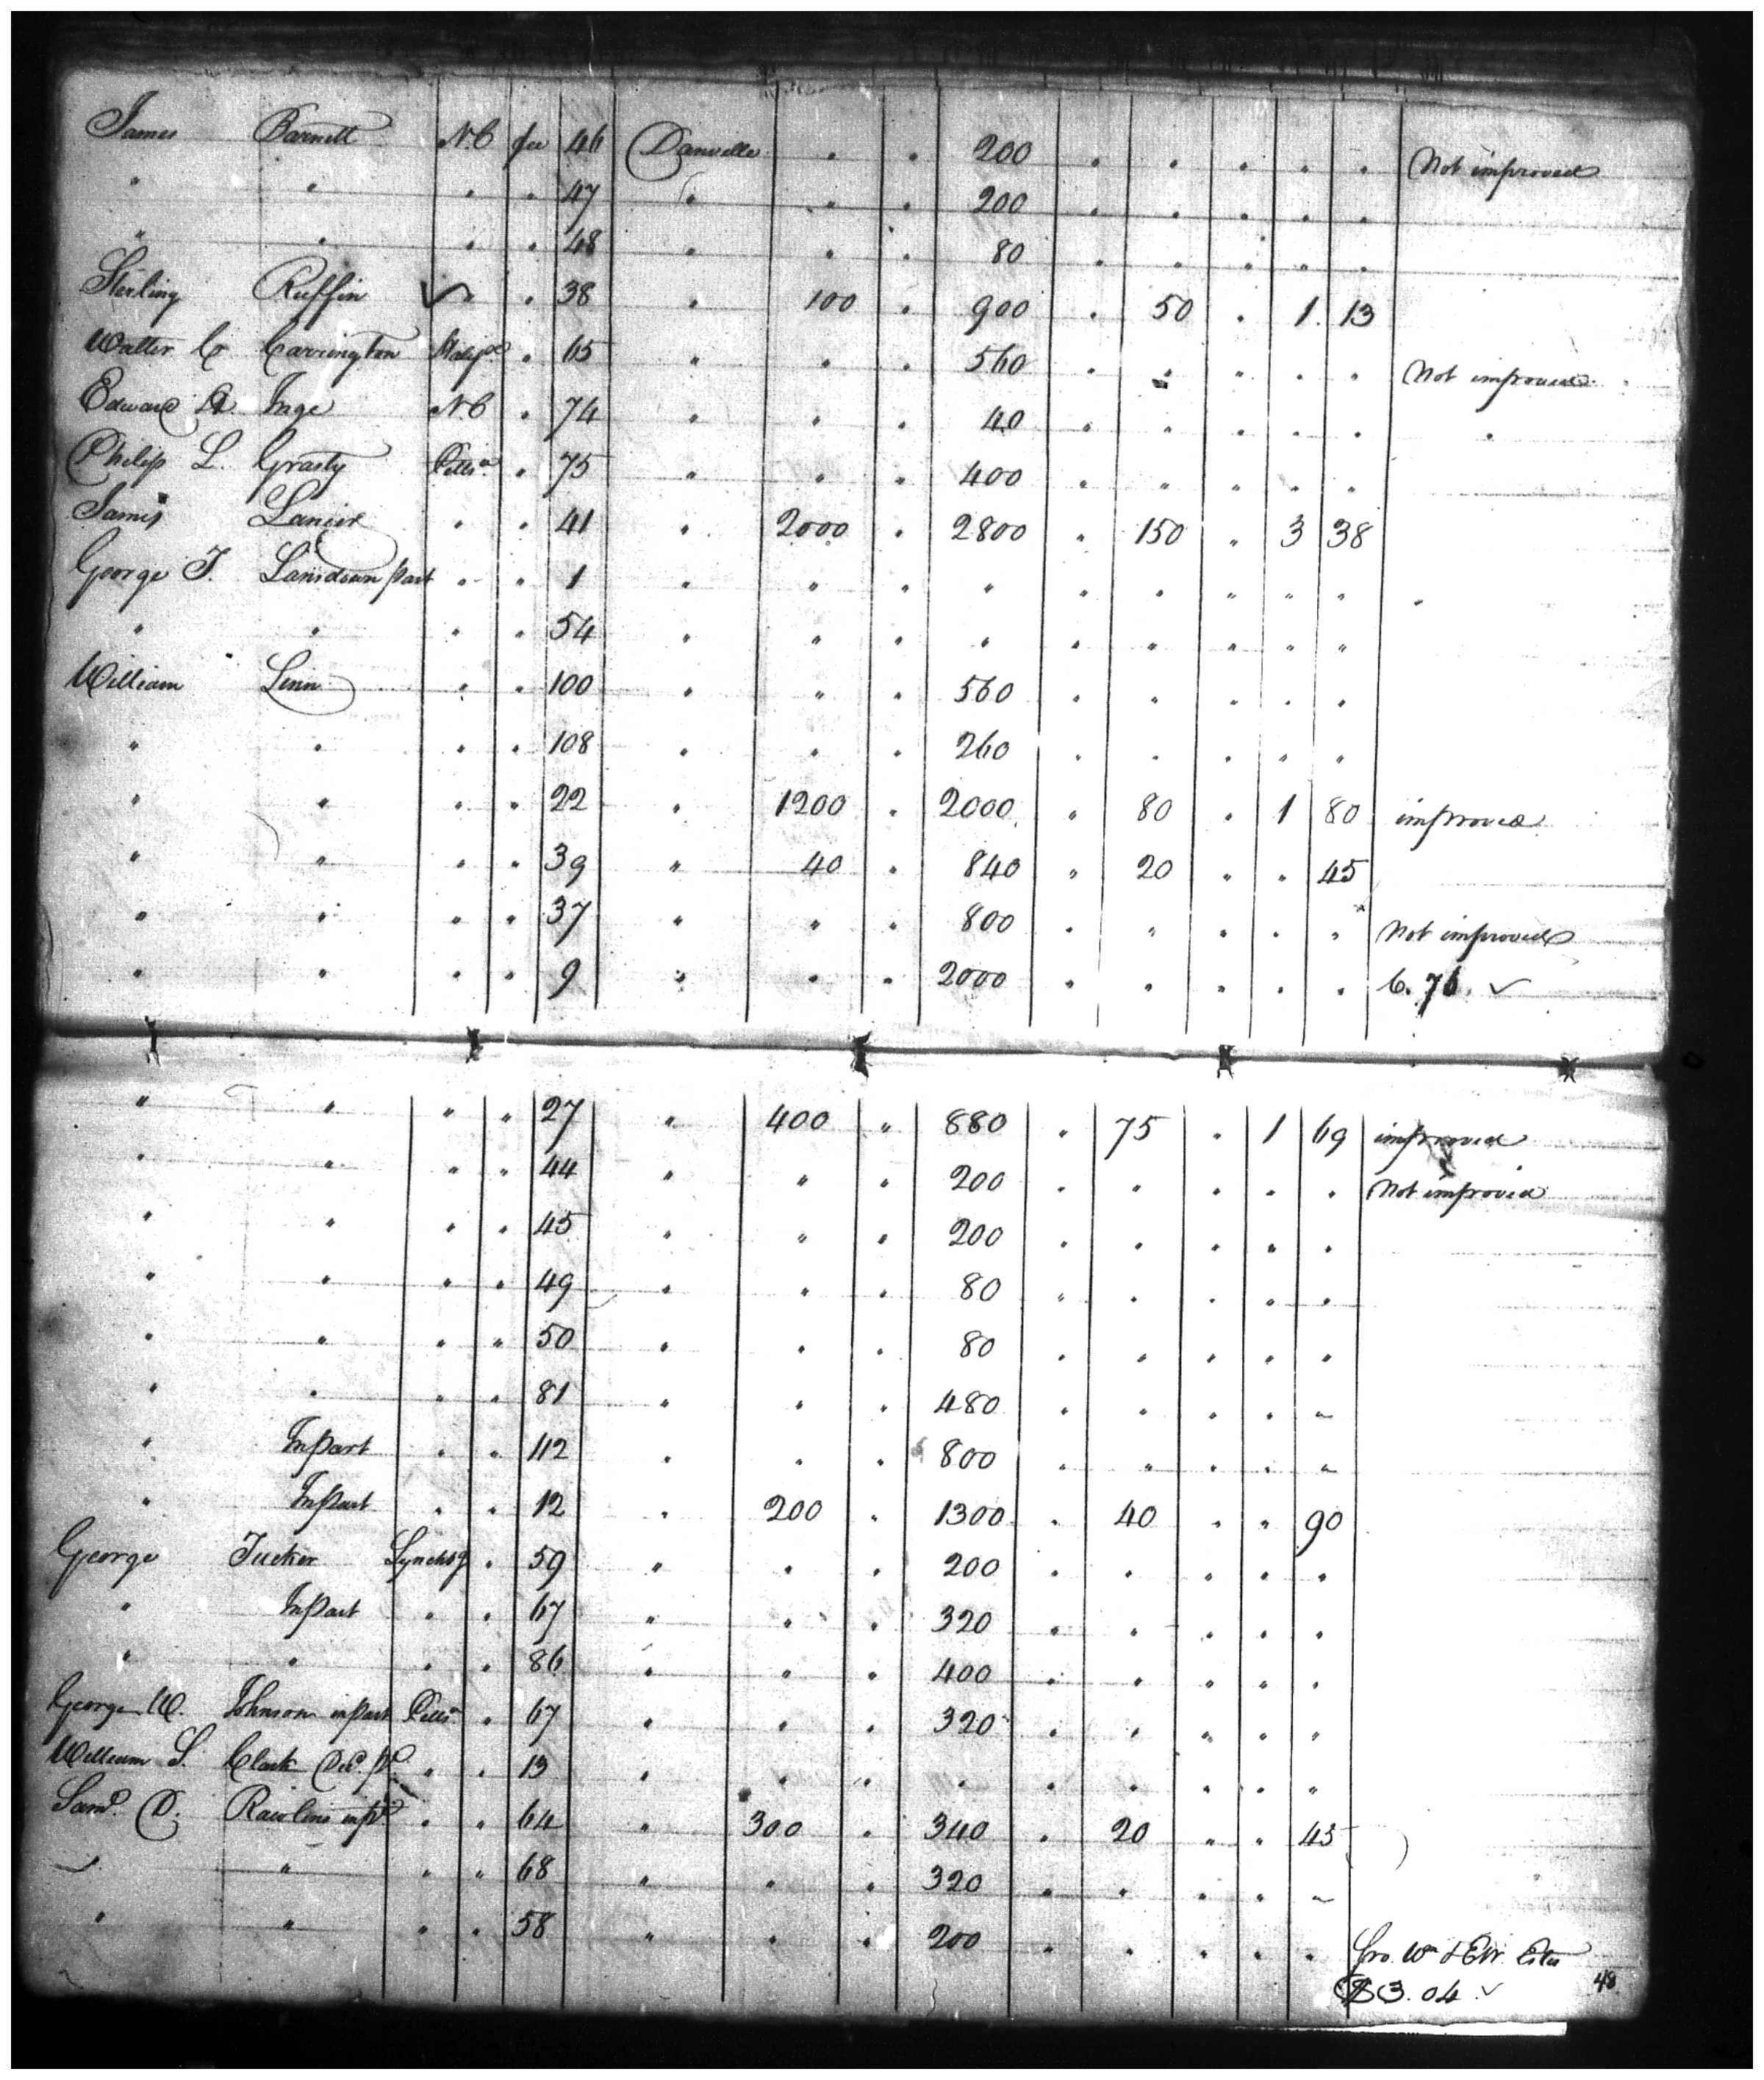 James Barnett N.C fee 46 Danville " " 200 " " " " " Not improved
" " " " 47 " " " 200 " " " " "
" " " " 48 " " " 80 " " " " "
Sterling Ruffin " " 38 " 100 " 900 " 50 " 1. 13
Walter C Carrington Halifx " 65 " " " 560 " " " " " Not improved
Edward Inge N.C " 74 " " " 40 " " " " " "
Philip L. Grasty Pittsa " 75 " " " 400 " " " " "
James Lanier " " 41 " 2000 " 2800 " 150 " 3 38
George T. Lansdown part " " 1 " " " " " " " " "
" " " " 54 " " " " " " " " "
William Linn " " 100 " " " 560 " " " " "
" " " " 108 " " " 260 " " " " "
" " " " 22 " 1200 " 2000 " 80 " 1 80 improved
" " " " 39 " 40 " 840 " 20 " " 45
" " " " 37 " " " 800 " " " " " Not improved
" " " " 9 " " " 2000 " " " " " 6.76 ✓
" " " " 27 " 400 " 880 " 75 " 1 69 improved
" " " " 44 " " " 200 " " " " " Not improved
" " " " 45 " " " 200 " " " " "
" " " " 49 " " " 80 " " " " "
" " " " 50 " " " 80 " " " " "
" " " " 81 " " " 480 " " " " "
" In part " " 112 " " " 800 " " " " "
" In part " " 12 " 200 " 1300 " 40 " " 90
George Tucker Lynchbg " 59 " " " 200 " " " " "
" In part " " 67 " " " 320 " " " " "
" " " " 86 " " " 400 " " " " "
George W. Johnson in part Pittsa " 67 " " " 320 " " " " "
William S. Clark Decd pt " " 13 " " " " " " " " "
Saml. D. Rawlins in pt " " 64 " 300 " 340 " 20 " " 45
" " " " 68 " " " 320 " " " " "
" " " " 58 " " " 200 " " " " "
$3.04 ✓
48